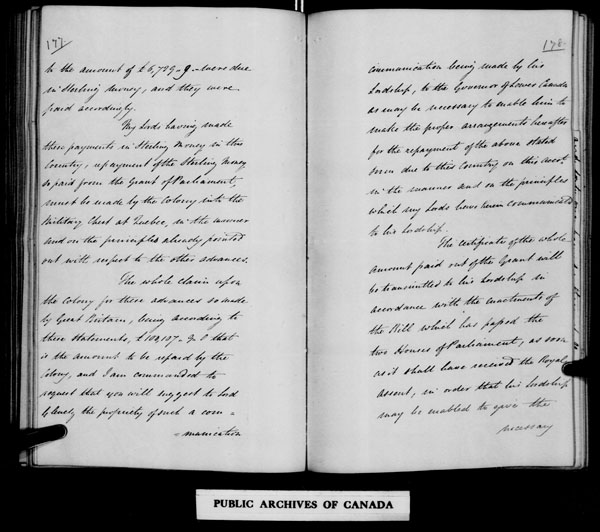 177
to the amount of £6,729-9- were due
in Sterling money, and they were
paid accordingly.
My Lords having made
these payments in Sterling Money in this
Country, repayment of the Sterling Money
so paid from the Grant of Parliament,
must be made by the Colony into the
Military Chest at Quebec, in the manner
and on the principles already pointed
out with respect to the other advances.
The whole claim upon
the Colony for these advances so made
by Great Britain, being according to
these Statements, that
is the amount to be repaid by the
Colony, and I am commanded to
request that you will suggest to Lord
Glenelg the propriety of such a com=
=munication
178
communication being made by his
Lordship, to the Governor of Lower Canada
as may be necessary to enable him to
make the proper arrangements hereafter
for the repayment of the above stated
sum due to this Country on this acct
in the manner and on the principles
which my Lords have herein communicated
to his Lordship.
The certificate of the whole
amount paid out of the Grant will
be transmitted to his Lordship in
accordance with the enactments of
the Bill which has passed the
two Houses of Parliament, as soon
as it shall have received the Royal
assent, in order that his Lordship
may be enabled to give the
necessary
PUBLIC ARCHIVES OF CANADA